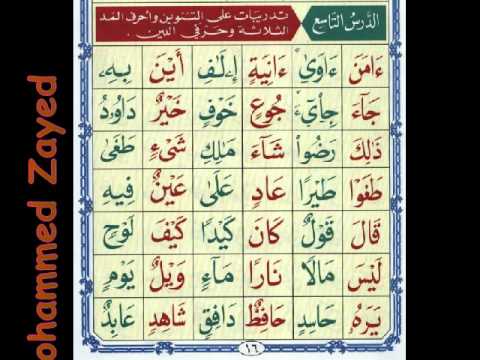 الدَّرْسُ التَّاسِعُ
تدريبات على التنوين وأحرف المد
الثلاثة وحرفي اللين .
ءَامَنَ ءَاوَىٰ ءَانِيَةٍ إِۦلَـٰفِ أَيْنَ بِهِۦ
جَآءَ جِاْىٓءَ جُوعٍ خَوْفٍ خَيْرٌ دَاوُۥدُ
ذَٰلِكَ رَضُواْ شَآءَ مَـٰلِكِ شَىْءٍ طَغَىٰ
طَغَوْا طَيْرًا عَادٍ عَلَىٰ عَيْنٌ فِيهِ
قَالَ قَوْلٌ كَانَ كَيْدًا كَيْفَ لَوْحٍ
لَيْسَ مَالًا نَارًا مَآءٍ وَيْلٌ يَوْمٍ
يَرَهُۥ حَاسِدٍ حَافِظٌ دَافِقٍ شَاهِدٍ عَابِدٌ
١٦
ohammed Zayed